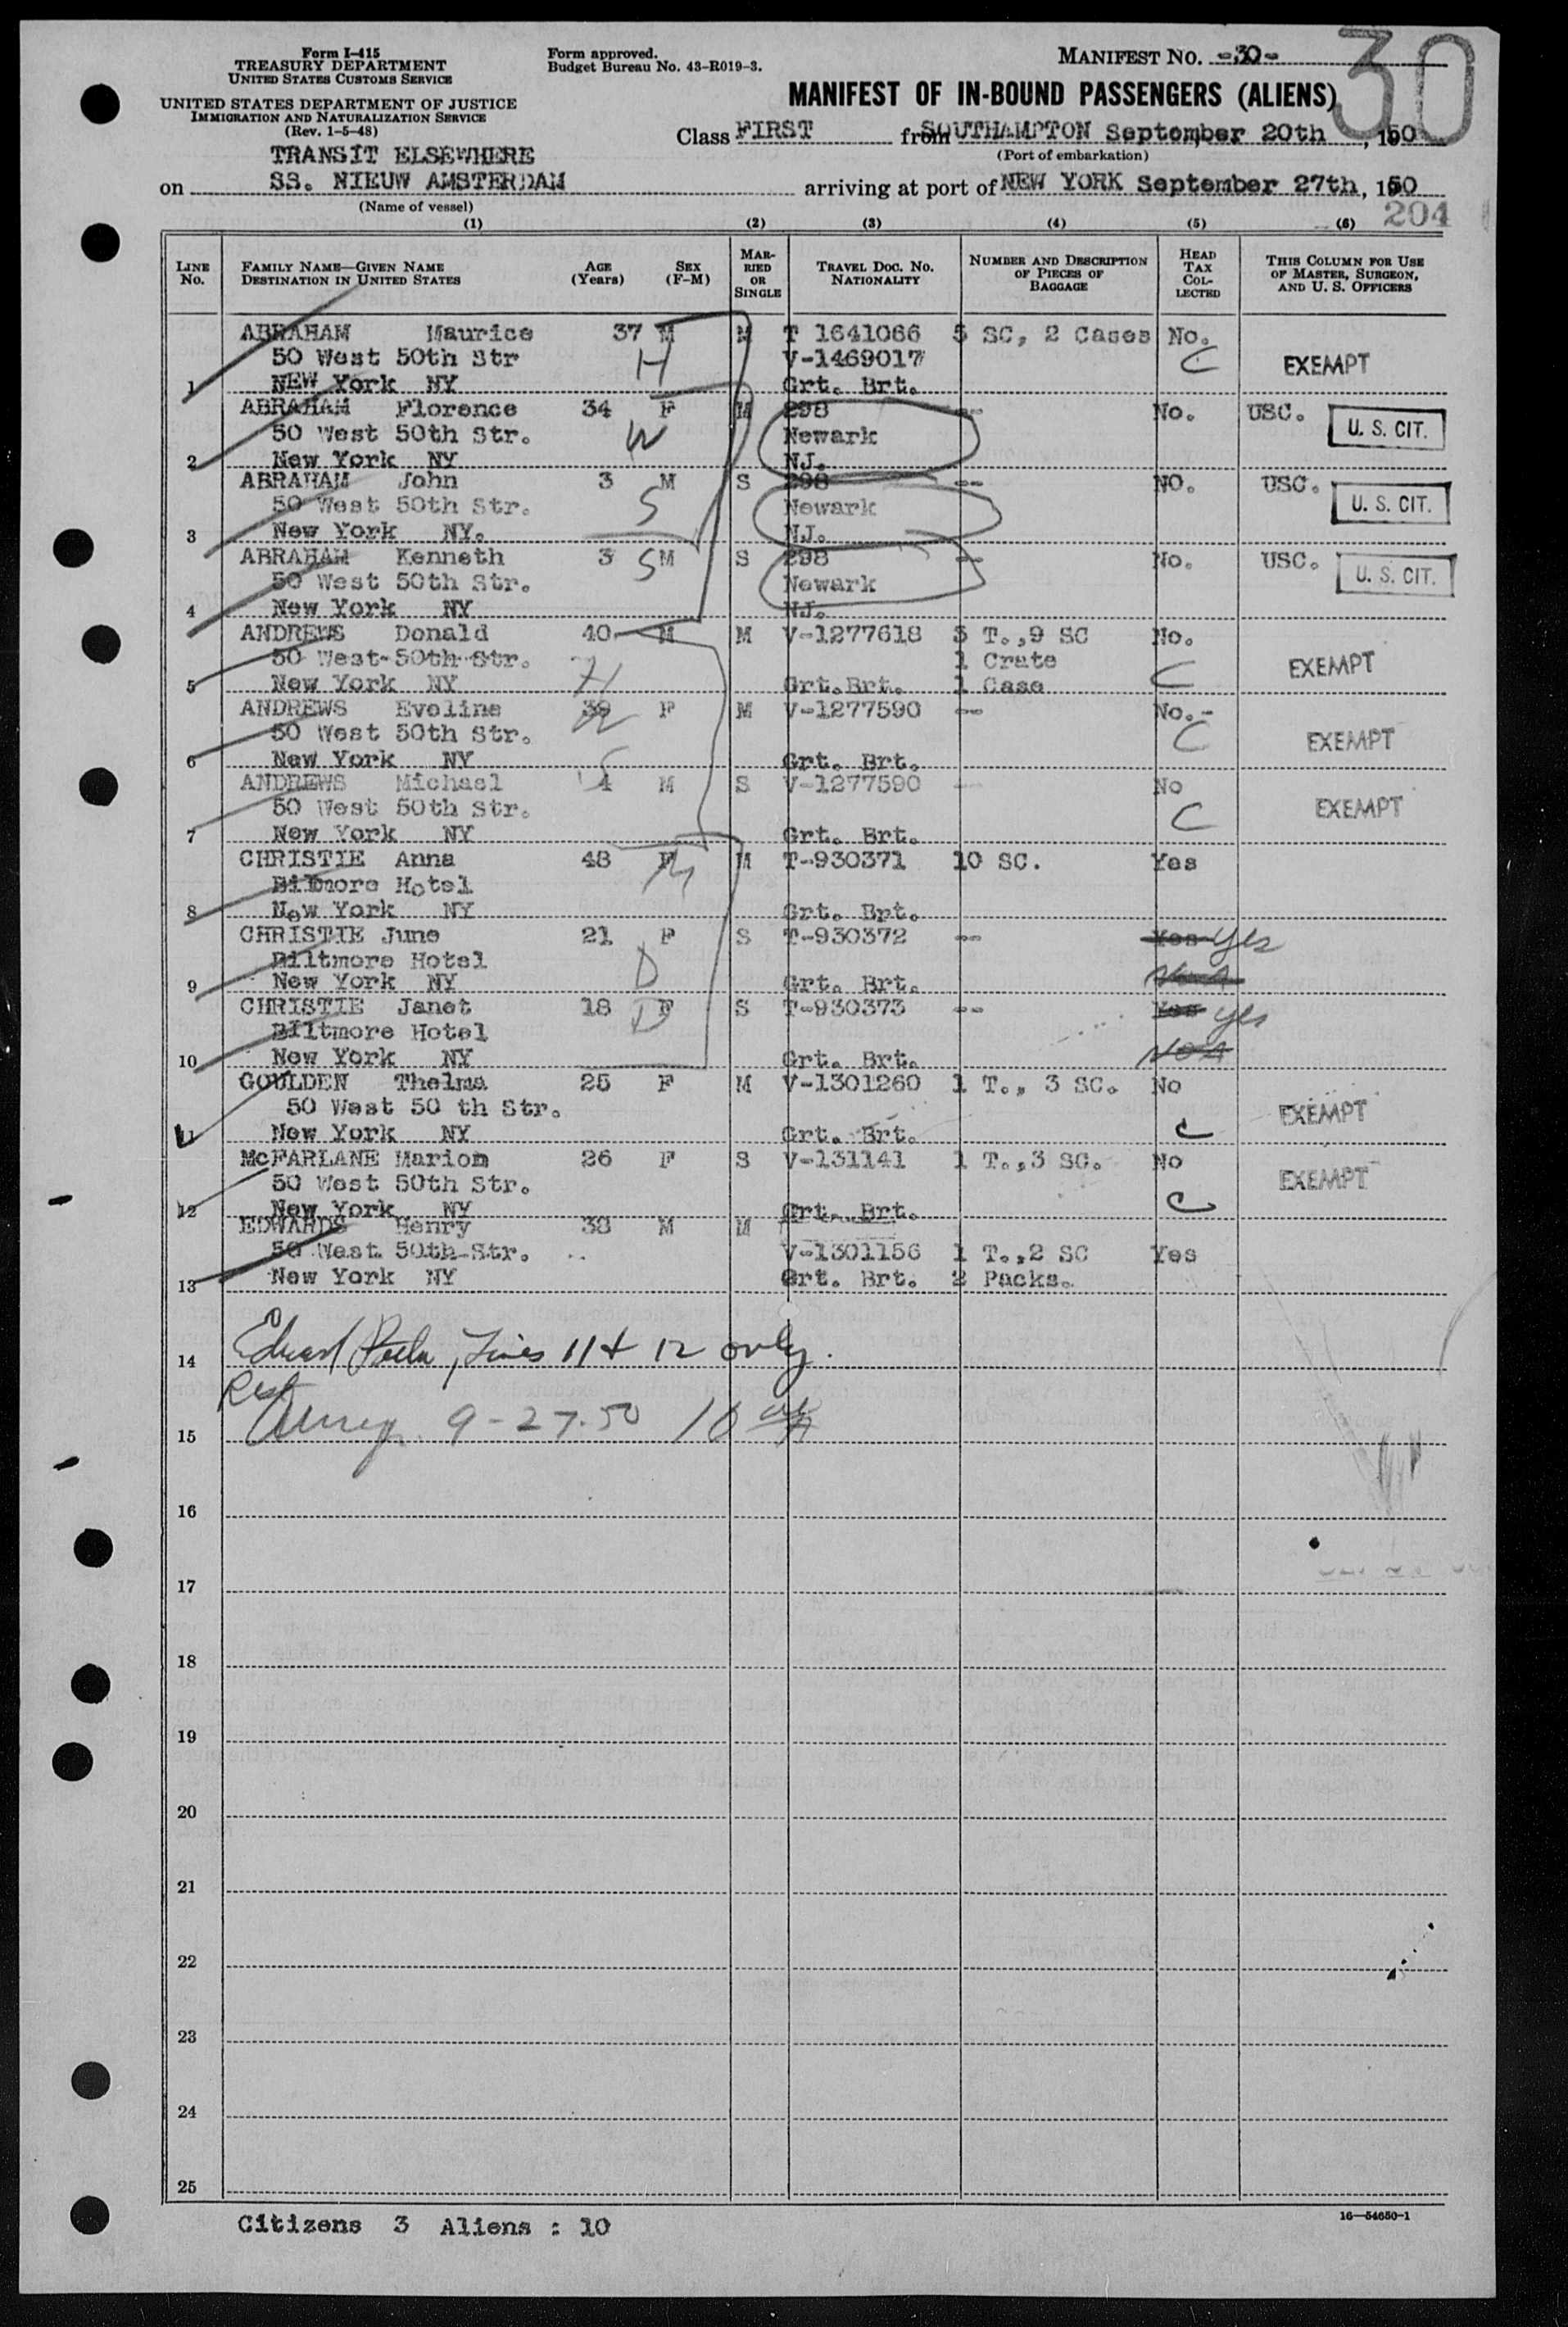 Form I-415
TREASURY DEPARTMENT
UNITED STATES CUSTOMS SERVICE
UNITED STATES DEPARTMENT OF JUSTICE
IMMIGRATION AND NATURALIZATION SERVICE
(Rev. 1-5-48)
Form approved.
Budget Bureau No. 43-R019-3.
MANIFEST NO. -30-
30
MANIFEST OF IN-BOUND PASSENGERS (ALIENS)
Class FIRST from SOUTHAMPTON September 20th, 1950
(Port of embarkation)
TRANSIT ELSEWHERE
on SS. NIEUW AMSTERDAM arriving at port of NEW YORK September 27th, 1950
(Name of vessel)
204
(1) (2) (3) (4) (5) (6)
LINE No. FAMILY NAME—GIVEN NAME DESTINATION IN UNITED STATES AGE (Years) SEX (F-M) MARRIED OR SINGLE TRAVEL DOC. NO. NATIONALITY NUMBER AND DESCRIPTION OF PIECES OF BAGGAGE HEAD TAX COLLECTED THIS COLUMN FOR USE OF MASTER, SURGEON, AND U. S. OFFICERS
ABRAHAM Maurice 37 M M T 1641066 5 SC, 2 Cases No.
50 West 50th Str H V-1469017 C EXEMPT
1 NEW York NY Grt. Brt.
ABRAHAM Florence 34 F M 298 -- No. USC. U. S. CIT.
50 West 50th Str. W Newark
2 New York NY NJ.
ABRAHAM John 3 M S 298 -- NO. USC. U. S. CIT.
50 West 50th Str. S Newark
3 New York NY. NJ.
ABRAHAM Kenneth 3 S M S 298 -- No. USC. U. S. CIT.
50 West 50th Str. Newark
4 New York NY NJ.
ANDREWS Donald 40 M M V-1277618 5 T.,9 SC No.
50 West 50th Str. 1 Crate EXEMPT
5 New York NY H Grt.Brt. 1 Case C
ANDREWS Eveline 39 F M V-1277590 -- No.-
50 West 50th Str. W C EXEMPT
6 New York NY Grt. Brt.
ANDREWS Michael 4 M S V-1277590 -- No
50 West 50th Str. C EXEMPT
7 New York NY Grt. Brt.
CHRISTIE Anna 48 F M T-930371 10 SC. Yes
Biltmore Hotel M
8 New York NY Grt. Brt.
CHRISTIE June 21 F S T-930372 -- Yes yes
Biltmore Hotel D
9 New York NY Grt. Brt.
CHRISTIE Janet 18 F S T-930373 -- Yes yes
Biltmore Hotel D
10 New York NY Grt. Brt.
GOULDEN Thelma 25 F M V-1301260 1 T., 3 SC. No
50 West 50 th Str. EXEMPT
11 New York NY Grt. Brt. C
McFARLANE Marion 26 F S V-131141 1 T.,3 SC. No
50 West 50th Str. EXEMPT
12 New York NY Grt. Brt. C
EDWARDS Henry 38 M M
50 West 50th Str. V-1301156 1 T.,2 SC Yes
13 New York NY Grt. Brt. 2 Packs.
14 Lines 11 & 12 only.
Rest
15 9-27-50
16
17
18
19
20
21
22
23
24
25
Citizens 3 Aliens : 10
16—54650-1